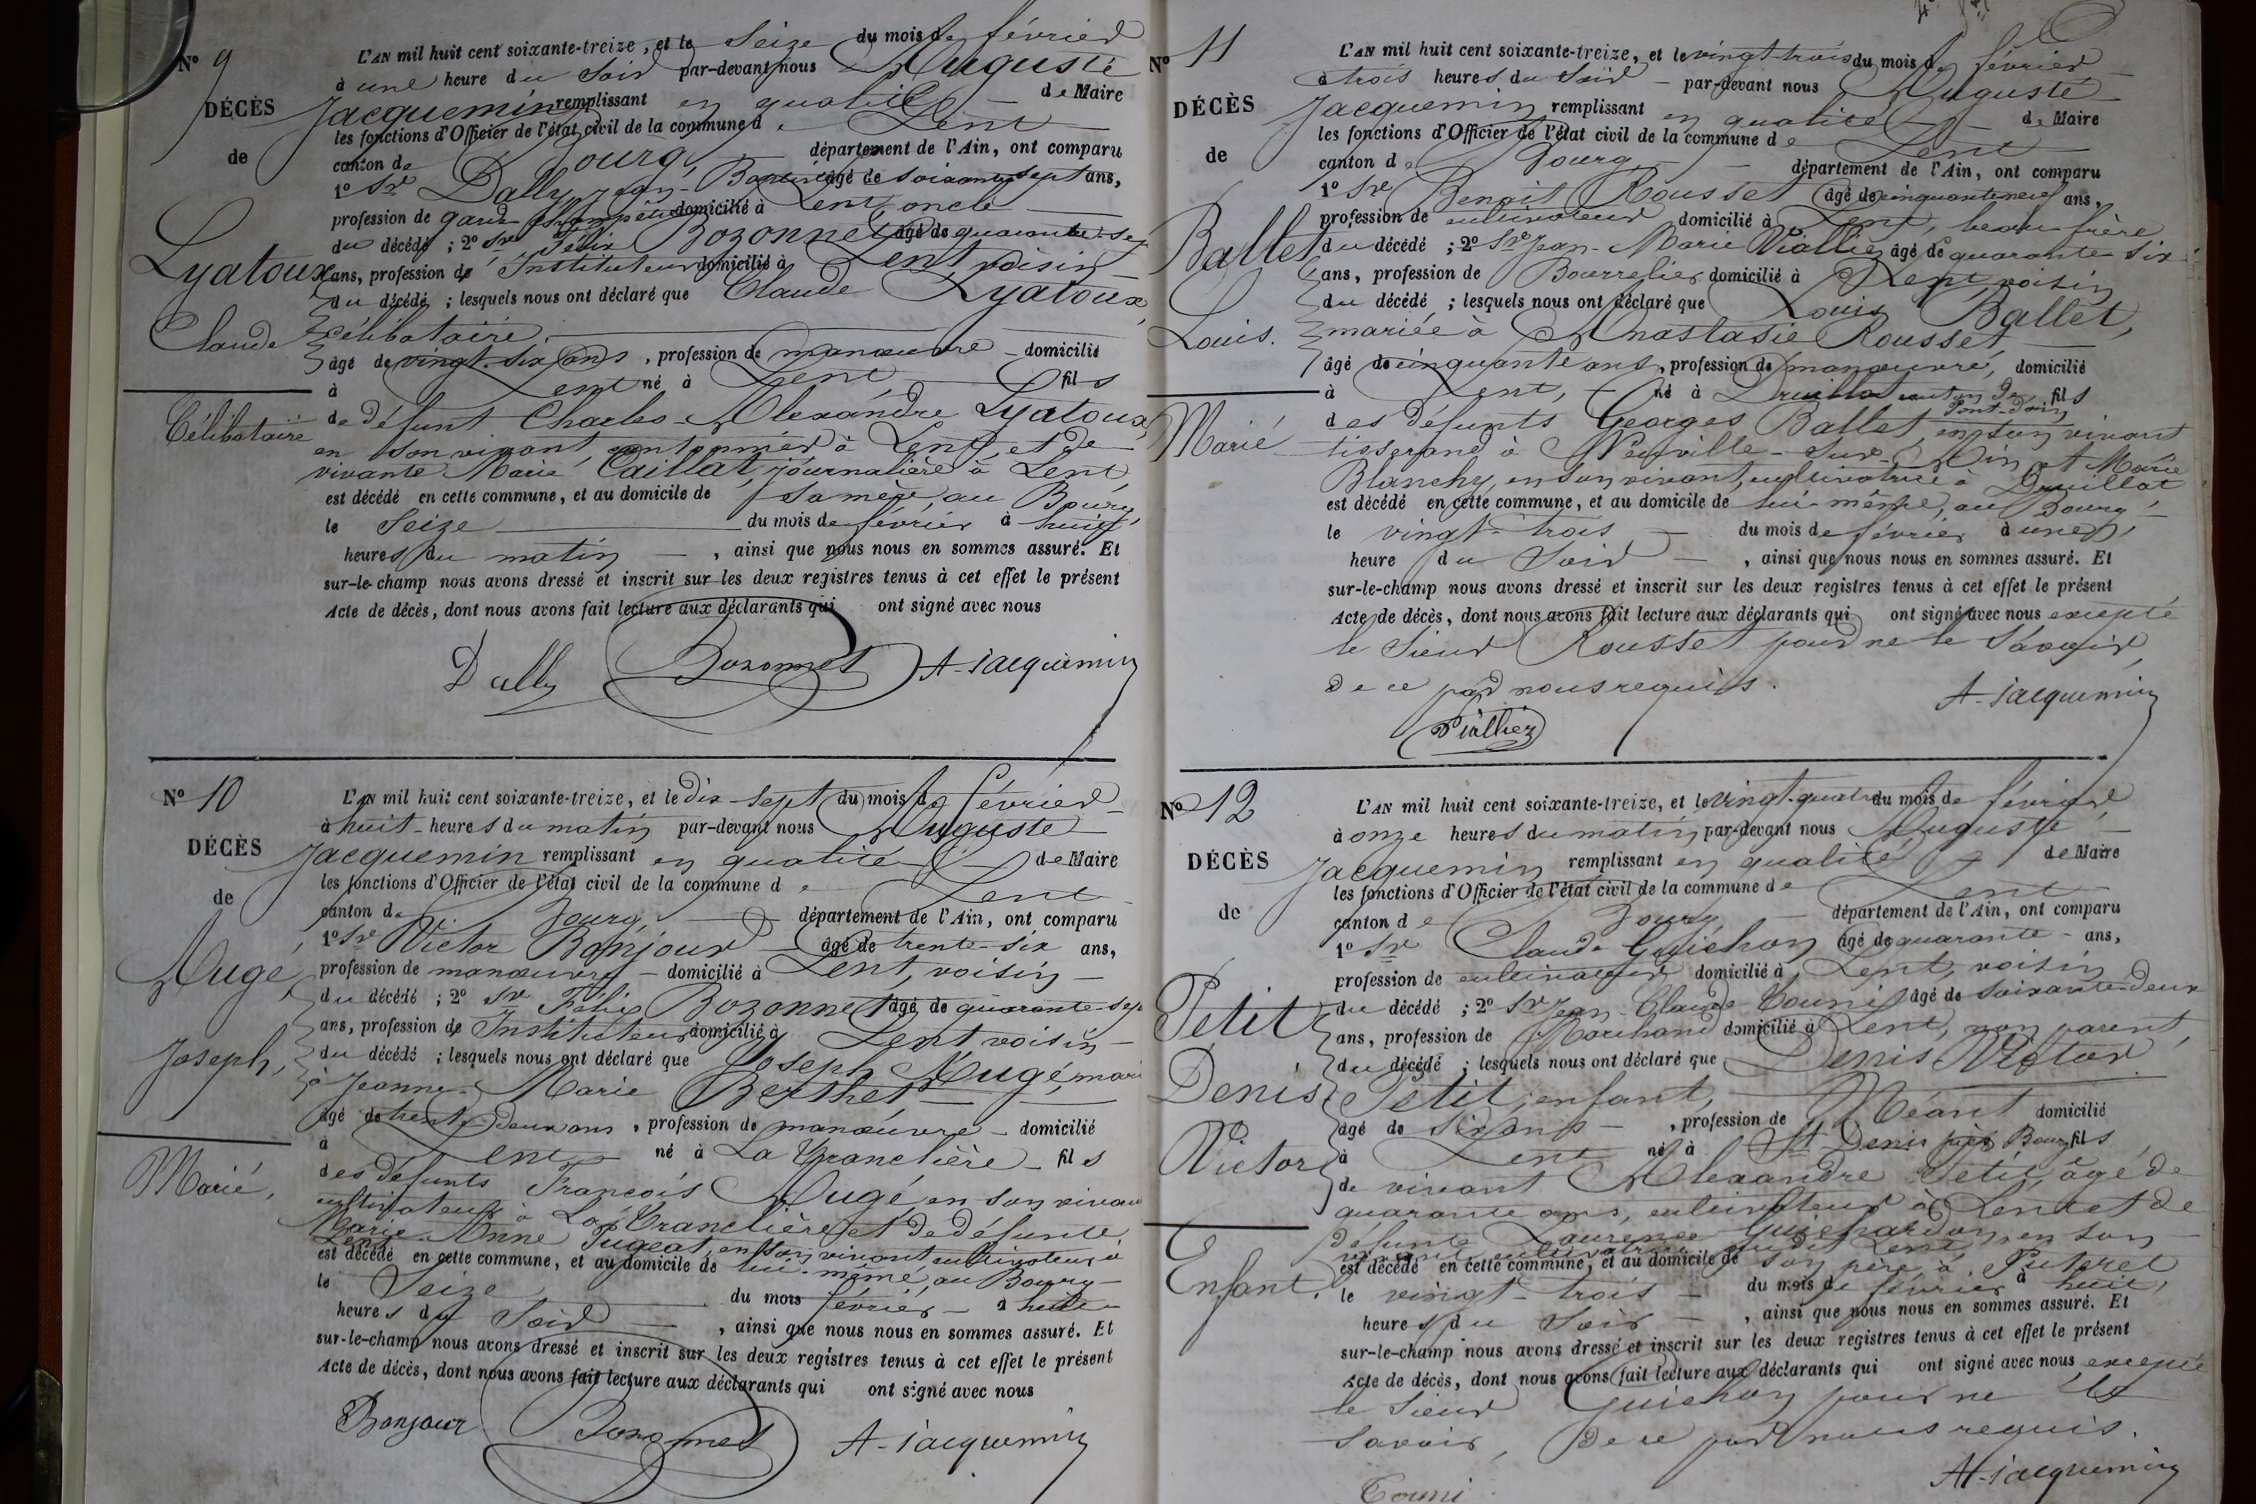 N° 9
DÉCÈS
de
Lyatoux
Claude
Célibataire
L'AN mil huit cent soixante-treize, et le Seize du mois de février
à une heure du Soir par-devant nous Auguste
Jacquemin remplissant en qualité de Maire
les fonctions d'Officier de l'état civil de la commune de Lent
canton de Bourg, département de l'Ain, ont comparu
1° Sr Dally Jean-Baptiste âgé de soixante sept ans,
profession de garde champêtre domicilié à Lent, oncle
du décédé ; 2° Sr Félix Bozonnet âgé de quarante-sept
ans, profession de Instituteur domicilié à Lent voisin
du décédé ; lesquels nous ont déclaré que Claude Lyatoux,
célibataire,
âgé de vingt-six ans, profession de manœuvre domicilié
à Lent né à Lent fils
de défunt Charles-Alexandre Lyatoux,
en son vivant cantonnier à Lent, et de
vivante Marie Caillat, journalière à Lent,
est décédé en cette commune, et au domicile de sa mère, au Bourg,
le Seize du mois de février à huit
heures du matin, ainsi que nous nous en sommes assuré. Et
sur-le-champ nous avons dressé et inscrit sur les deux registres tenus à cet effet le présent
Acte de décès, dont nous avons fait lecture aux déclarants qui ont signé avec nous
Dally Bozonnet A-Jacquemin
N° 10
DÉCÈS
de
Mugé,
Joseph,
Marié,
L'AN mil huit cent soixante-treize, et le dix-sept du mois de février
à huit-heures du matin par-devant nous Auguste
Jacquemin remplissant en qualité de Maire
les fonctions d'Officier de l'état civil de la commune de Lent
canton de Bourg département de l'Ain, ont comparu
1° Sr Victor Bonjour âgé de trente-six ans,
profession de manœuvre domicilié à Lent, voisin
du décédé ; 2° Sr Félix Bozonnet âgé de quarante-sept
ans, profession de Instituteur domicilié à Lent voisin
du décédé ; lesquels nous ont déclaré que Joseph Mugé, marié
à Jeanne-Marie Berthet
âgé de trente-deux ans, profession de manœuvre domicilié
à Lent né à La Tranclière fils
des défunts François Mugé, en son vivant
cultivateur à La Tranclière et de défunte
Marie-Anne Pugeat, en son vivant cultivateur à
Lent
est décédé en cette commune, et au domicile de lui-même, au Bourg
le Seize, du mois février à huit
heures du Soir, ainsi que nous nous en sommes assuré. Et
sur-le-champ nous avons dressé et inscrit sur les deux registres tenus à cet effet le présent
Acte de décès, dont nous avons fait lecture aux déclarants qui ont signé avec nous
Bonjour Bozonnet A-Jacquemin
N° 11
DÉCÈS
de
Ballet
Louis.
Marié
L'AN mil huit cent soixante-treize, et le vingt-trois du mois de février
à trois heures du Soir par-devant nous Auguste
Jacquemin remplissant en qualité de Maire
les fonctions d'Officier de l'état civil de la commune de Lent
canton de Bourg département de l'Ain, ont comparu
1° Sr Benoit Rousset âgé de cinquante neuf ans,
profession de cultivateur domicilié à Lent, beau-frère
du décédé ; 2° Sr Jean-Marie Vialliez âgé de quarante-six
ans, profession de Bourrelier domicilié à Lent, voisin
du décédé ; lesquels nous ont déclaré que Louis Ballet,
mariée à Anastasie Rousset
âgé de cinquante ans, profession de manœuvre, domicilié
à Lent, né à Druillat canton de Pont-d'ain fils
des défunts Georges Ballet, en son vivant
tisserand à Neuville-sur-Ain et Marie
Blanchy, en son vivant, cultivatrice à Druillat
est décédé en cette commune, et au domicile de lui-même, au Bourg
le vingt-trois du mois de février à une
heure du Soir, ainsi que nous nous en sommes assuré. Et
sur-le-champ nous avons dressé et inscrit sur les deux registres tenus à cet effet le présent
Acte de décès, dont nous avons fait lecture aux déclarants qui ont signé avec nous excepté
le Sieur Rousset pour ne le Savoir
de ce par nous requis.
Vialliez A-Jacquemin
N° 12
DÉCÈS
de
Petit
Denis
Victor
Enfant.
L'AN mil huit cent soixante-treize, et le vingt-quatre du mois de février
à onze heures du matin par-devant nous Auguste
Jacquemin remplissant en qualité de Maire
les fonctions d'Officier de l'état civil de la commune de Lent
canton de Bourg département de l'Ain, ont comparu
1° Sr Claude Guichon âgé de quarante ans,
profession de cultivateur domicilié à Lent, voisin
du décédé ; 2° Sr Jean-Claude Touni âgé de soixante-deux
ans, profession de Marchand domicilié à Lent, non parent,
du décédé ; lesquels nous ont déclaré que Denis Victor
Petit, enfant,
âgé de Six ans, profession de Néant domicilié
à Lent né à St Denis près Bourg fils
de vivant Alexandre Petit, âgé de
quarante ans, cultivateur à Lent et de
défunte Laurence Guichardon, en son
vivant cultivatrice audit Lent,
est décédé en cette commune, et au domicile de son père, à
le vingt-trois du mois de février à huit
heures du Soir, ainsi que nous nous en sommes assuré. Et
sur-le-champ nous avons dressé et inscrit sur les deux registres tenus à cet effet le présent
Acte de décès, dont nous avons fait lecture aux déclarants qui ont signé avec nous excepté
le Sieur Guichon pour ne le
Savoir, de ce par nous requis.
Touni A-Jacquemin